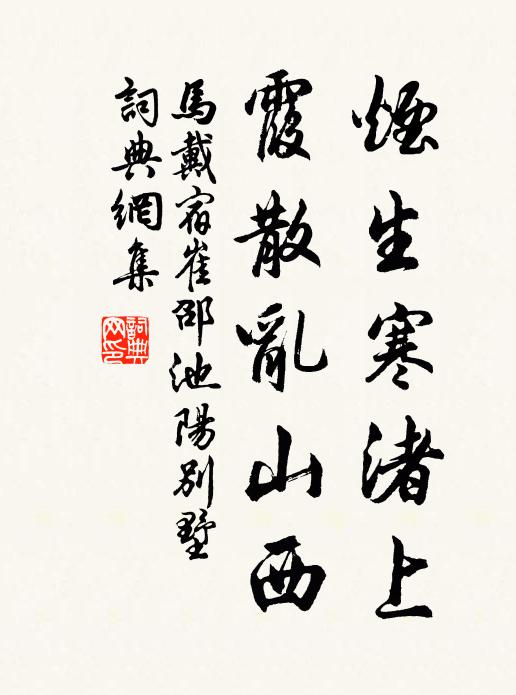 煙生寒渚上
霞散亂山西
馬戴宿崔邵池陽別墅
詞典網集
詞典網印